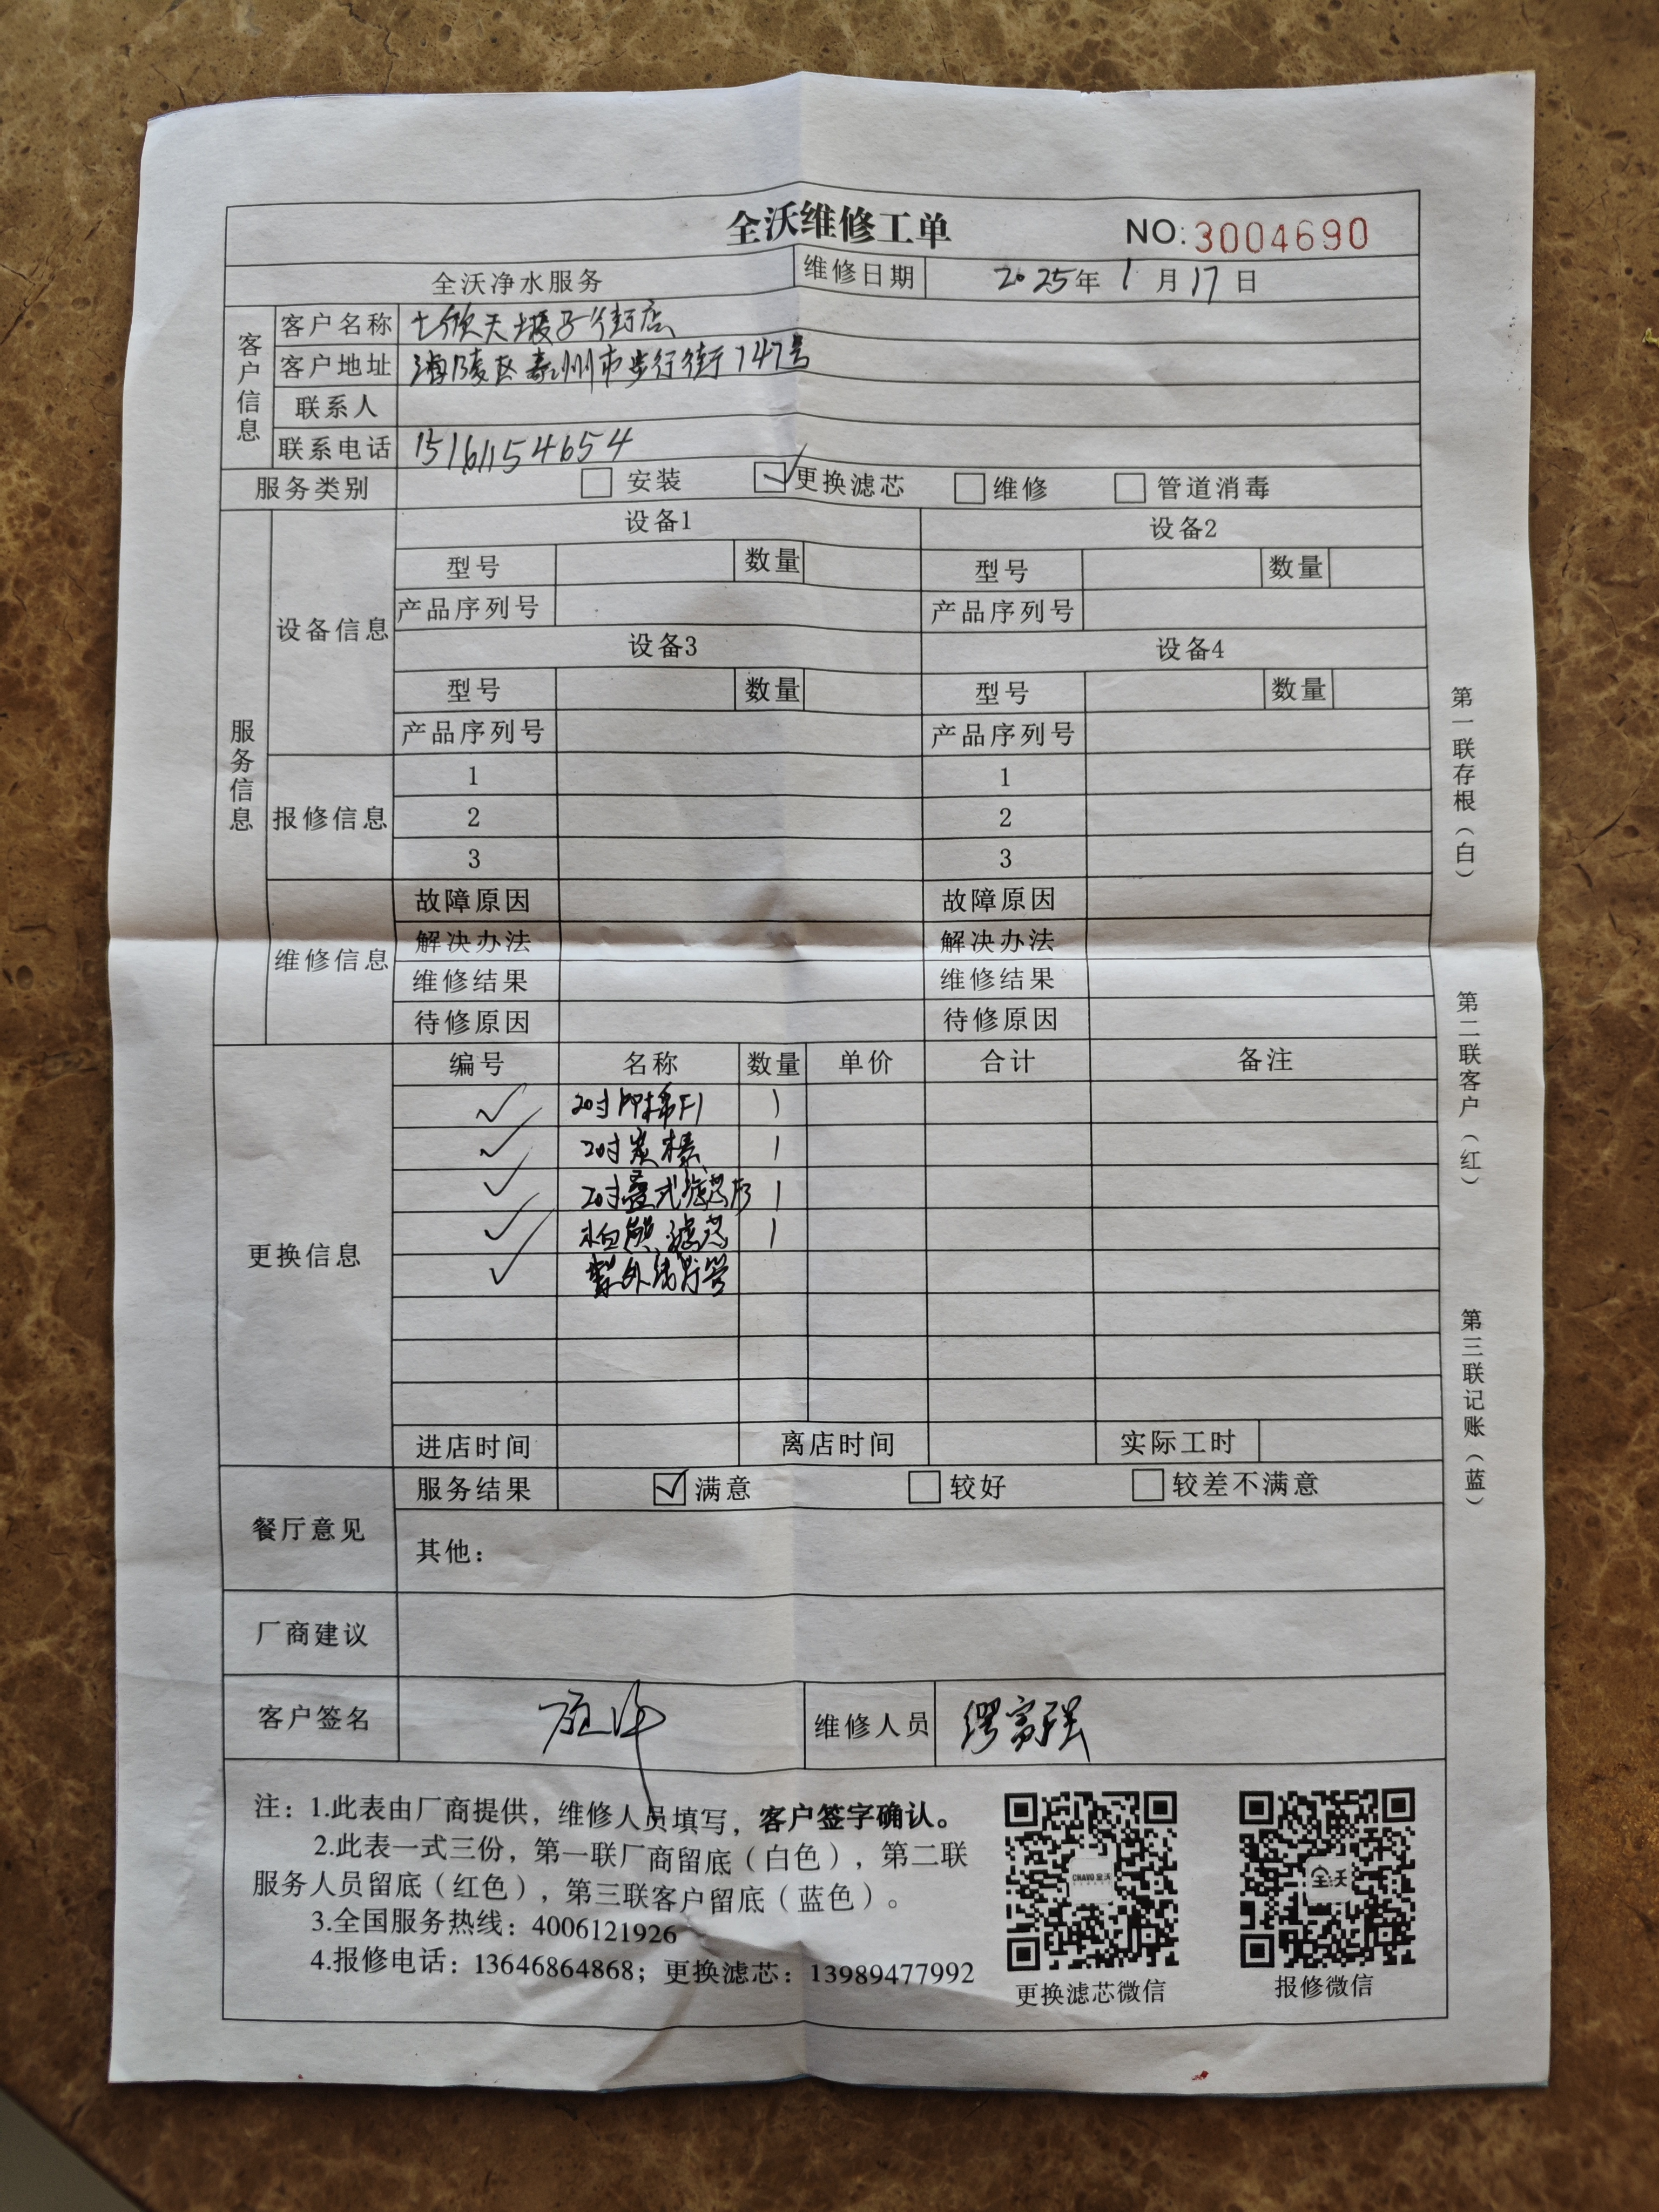 全沃维修工单 NO:3004690
全沃净水服务 维修日期 2025年1月17日
客户信息
客户名称 七欣天坡子街店
客户地址 海陵区泰州市步行街747号
联系人
联系电话 15161154654
服务类别 安装 更换滤芯 维修 管道消毒
服务信息
设备信息
设备1 设备2
型号 数量 型号 数量
产品序列号 产品序列号
设备3 设备4
型号 数量 型号 数量
产品序列号 产品序列号
报修信息
1 1
2 2
3 3
维修信息
故障原因 故障原因
解决办法 解决办法
维修结果 维修结果
待修原因 待修原因
更换信息
编号 名称 数量 单价 合计 备注
20寸PP棉F1 1
20寸炭棒 1
20寸叠式滤芯F3 1
滤芯 1
紫外线灯管
进店时间 离店时间 实际工时
餐厅意见
服务结果 满意 较好 较差不满意
其他：
厂商建议
客户签名 维修人员 缪富强
注：1.此表由厂商提供，维修人员填写，客户签字确认。
2.此表一式三份，第一联厂商留底（白色），第二联
服务人员留底（红色），第三联客户留底（蓝色）。
3.全国服务热线：4006121926
4.报修电话：13646864868；更换滤芯：13989477992
CNAVO 全沃
全沃
更换滤芯微信 报修微信
第一联存根（白）
第二联客户（红）
第三联记账（蓝）